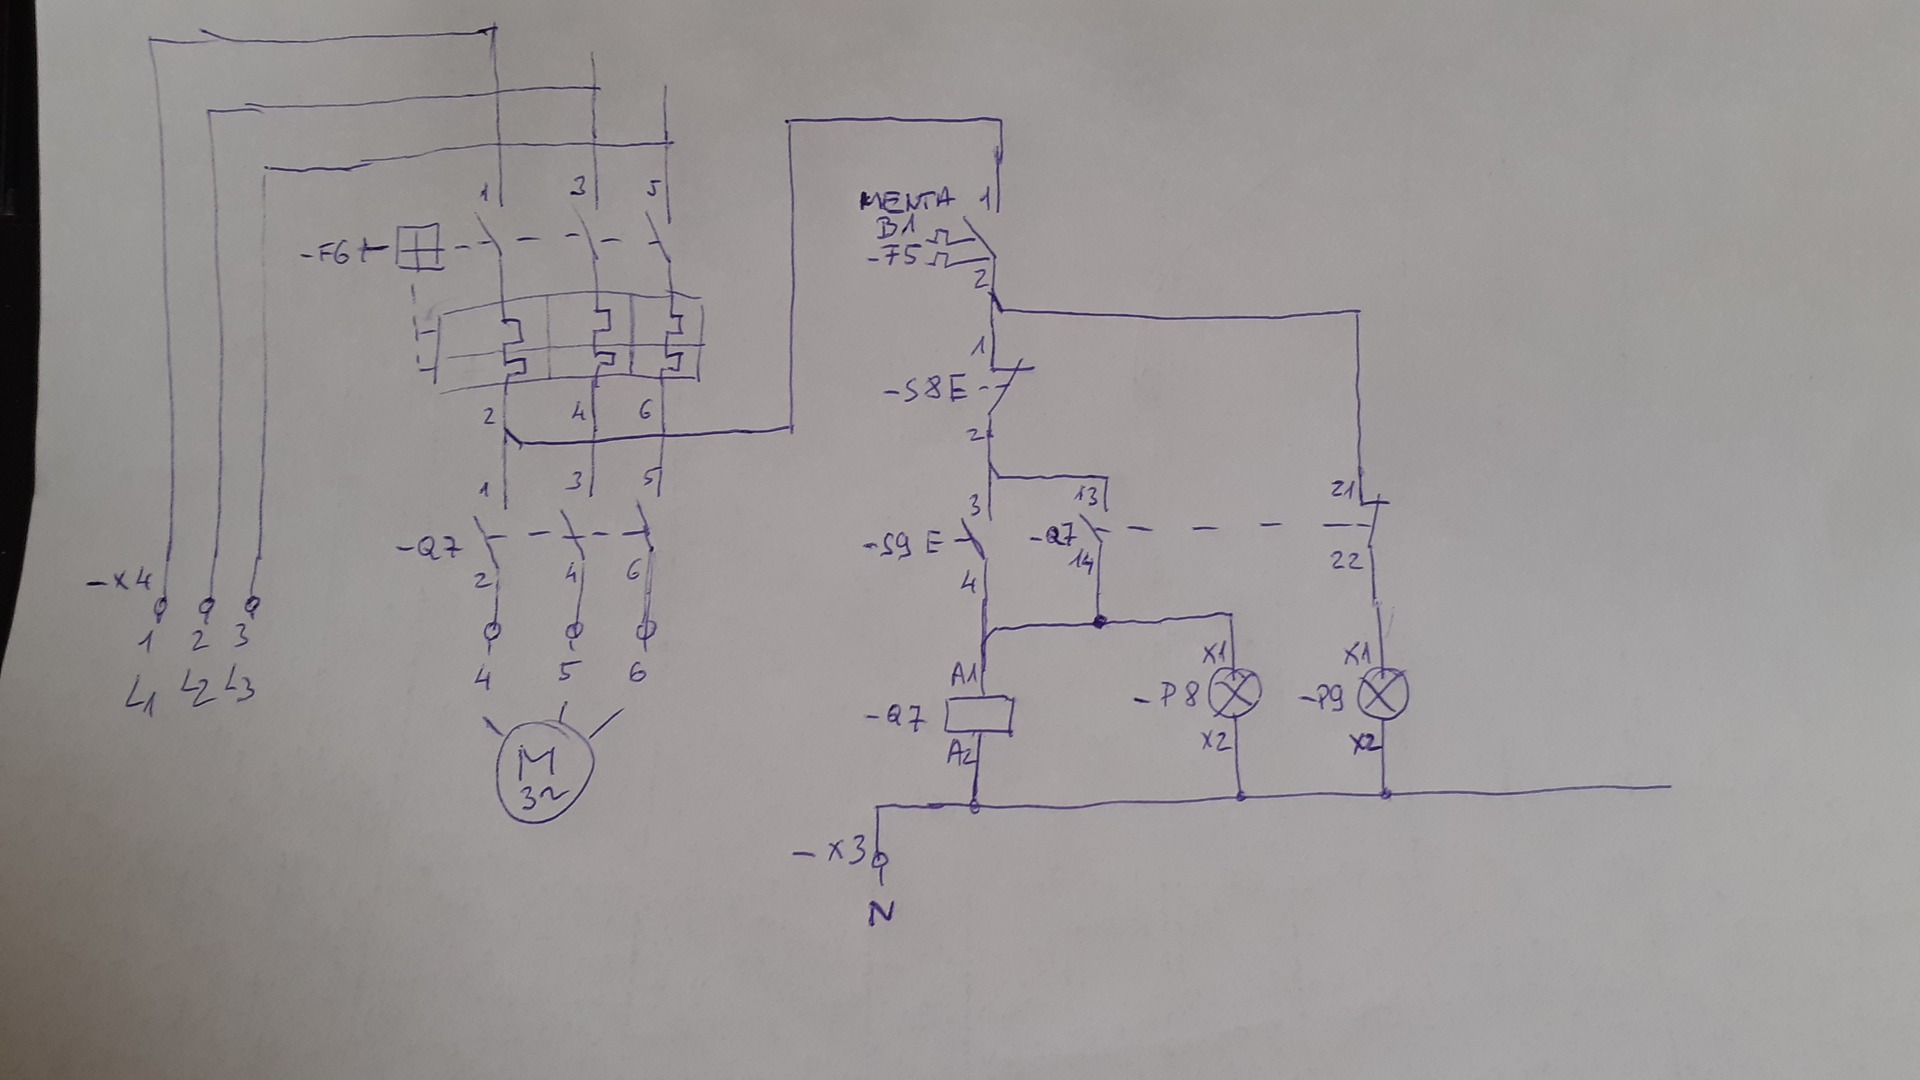 1 3 5
-F6
2 4 6
1 3 5
-Q7
2 4 6
-X4
1 2 3
L1 L2 L3
4 5 6
M
3~
MENTA 1
B1
-F5
2
1
-S8 E
2
3 13 21
-S9 E -Q7
4 14 22
A1 X1 X1
-Q7 -P8 -P9
A2 X2 X2
-X3
N